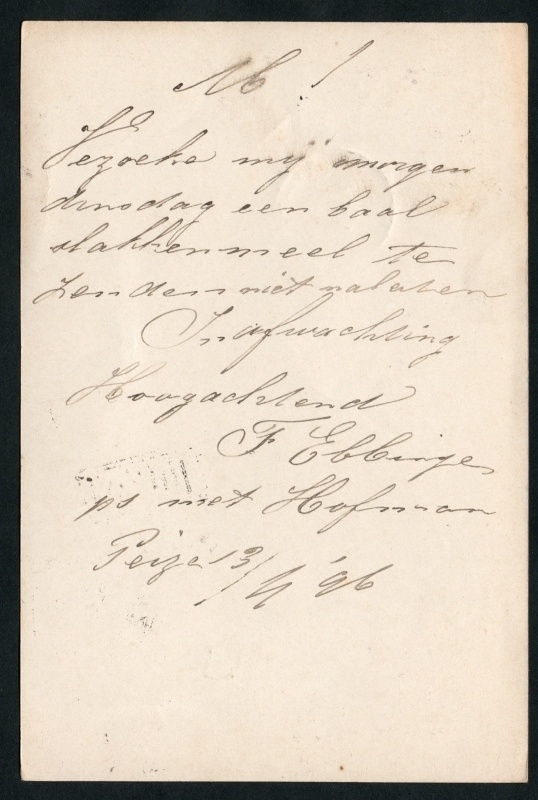 M !
Verzoeke mij morgen
dinsdag een baal
slakkenmeel te
zenden niet nalaten
In afwachting
Hoogachtend
F Ebbinge
ps met Hofman
Peize 13/4 '96